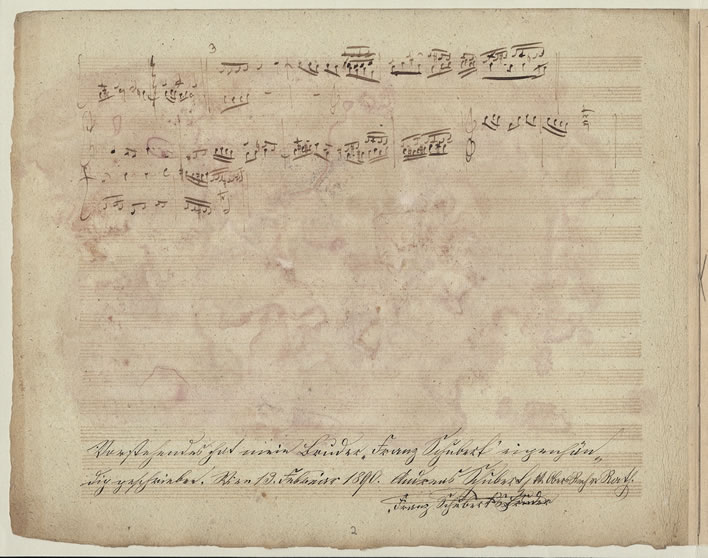 3
Vorstehendes hat mein Bruder, Franz Schubert eigenhän-
dig geschrieben. Wien 13. Februar 1890. Andreas Schubert,
Franz Schubert's
2